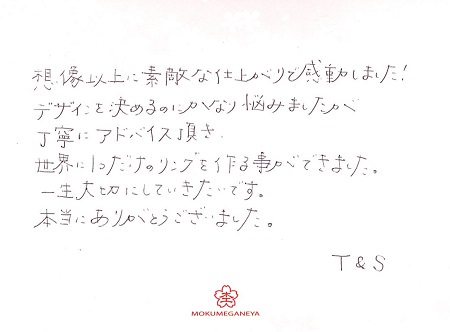 想像以上に素敵な仕上がりで感動しました!
デザインを決めるのにかなり悩みましたが
丁寧にアドバイス頂き
世界に1つだけのリングを作る事ができました。
一生大切にしていきたいです。
本当にありがとうございました。
T & S
MOKUMEGANEYA